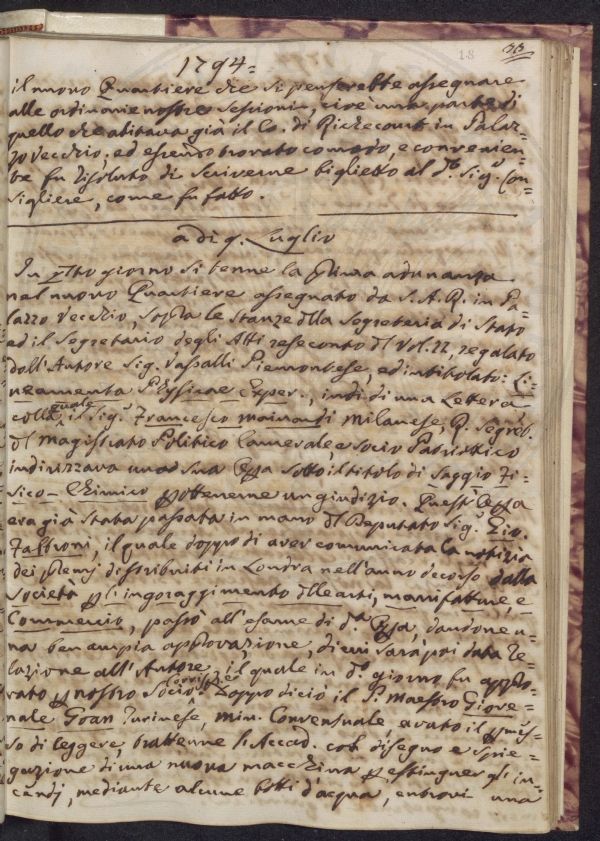 18 33
1794=
il nuovo Quartiere che si penserebbe assegnare
alle ordinarie nostre Sessioni, cioè una parte di
quello che abitava già il Co. di Richecourt in Palaz-
zo vecchio, ed essendo trovato comodo, e convenien-
te fu risoluto di scriverne biglietto al d.º Sig.r Con-
sigliere, come fu fatto.
a dì 9. Luglio
In q̃sto giorno si tenne la p̃ma adunanza
nel nuovo Quartiere assegnato da S. A. R. in Pa-
lazzo Vecchio, sopra le stanze d̃lla Segreteria di Stato
ed il Segretario degli Atti rese conto d̃l Vol. regalato
dall'Autore Sig. Vassalli Piemontese, ed intitolato: Li-
neamenta Physicae Exper., indi di una Lettera
colla quale il Sig.r Francesco Milanese, R. Segret.
d̃l Magistrato Politico Camerale, e Socio Patriottico
indirizzava una sua sotto il titolo di Saggio Fi-
sico-Chimico p̃ ottenerne un giudizio. Quest'
era già stata passata in mano d̃l Deputato Sig.r Gio.
Fabbroni, il quale doppo di aver comunicata la notizia
dei p̃emj distribuiti in Londra nell'anno decorso dalla
Società p̃ l'ingoraggimento d̃lle arti, manifatture, e
Commercio, passò all'esame di d.ª dandone u-
na ben ampia approvazione, di cui sarà poi data re-
lazione all'Autore, il quale in d.º giorno fu appro-
vato p̃ nostro Socio Corrisp. Doppo di ciò il P. Maestro Giove-
nale Goan Turinese, Min. Conventuale avuto il p̃mes-
so di leggere, trattenne l'Accad. col disegno e spie-
gazione di una nuova macchina p̃ estinguer gl'in-
cendj, mediante alcune botti d'acqua, entrovi una